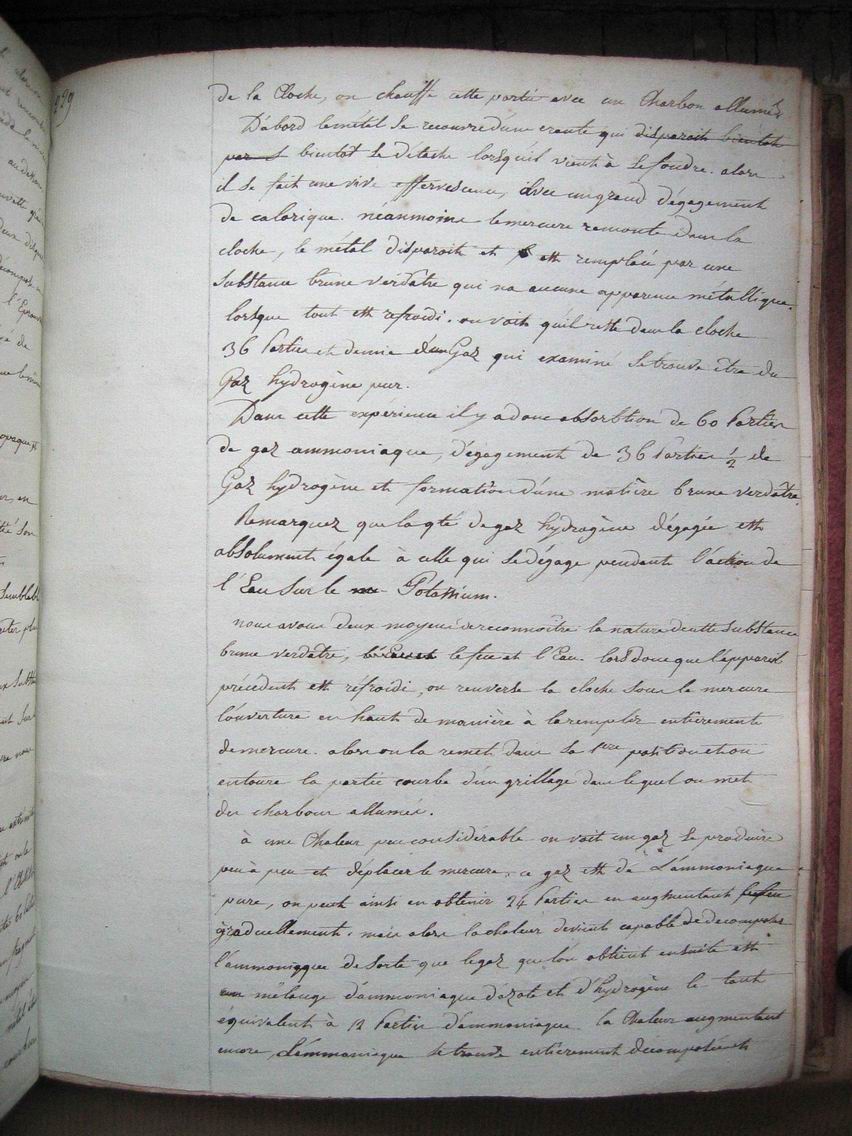 229
de la Cloche, on chauffe cette partie avec un Charbon allumés
D'abord le métal se recouvre d'une croute qui disparoit bientot
par s bientot se détache lorsqu'il vient à se fondre. alors
il se fait une vive effervescence, avec un grand dégagement
de calorique. néanmoins le mercure remonte dans la
cloche, le métal disparoit et est remplacé par une
substance brune verdâtre qui n'a aucune apparence métallique.
lorsque tout est refroidi. on voit qu'il reste dans la cloche
36 Parties et demie d'un Gaz qui examiné se trouve être du
Gaz hydrogène pur.
Dans cette experience il y a donc absorbtion de 60 Parties
de gaz ammoniaque, dégagement de 36 Parties 1/2 de
Gaz hydrogène et formation d'une matière brune verdâtre.
Remarquez que la qté de gaz hydrogène dégagée est
absolument égale à celle qui se dégage pendant l'action de
l'Eau sur le Potassium.
nous avons deux moyens de reconnoitre la nature de cette substance
brune verdatre, le feu et l'Eau. lors donc que l'appareil
précédent est réfroidi, on renverse la cloche sous le mercure
l'ouverture en haut de manière à la remplir entièrement
de mercure. alors on la remet dans sa 1ere position et on
entoure la partie courbe d'un grillage dans lequel on met
du charbons allumés.
à une Chaleur peu considérable on voit un gaz se produire
peu à peu et déplacer le mercure, ce gaz est de L'ammoniaque
pure, on peut ainsi en obtenir 24 Parties en augmentant le feu
graduellement. mais alors la chaleur devient capable de decomposer
l'ammoniaque de sorte que le gaz que l'on obtient ensuite est
un mélange d'ammoniaque d'azote et d'hydrogène le tout
équivalent à 12 Parties d'ammoniaque. la Chaleur augmentant
encore, L'ammoniaque se trouve entièrement decomposée et